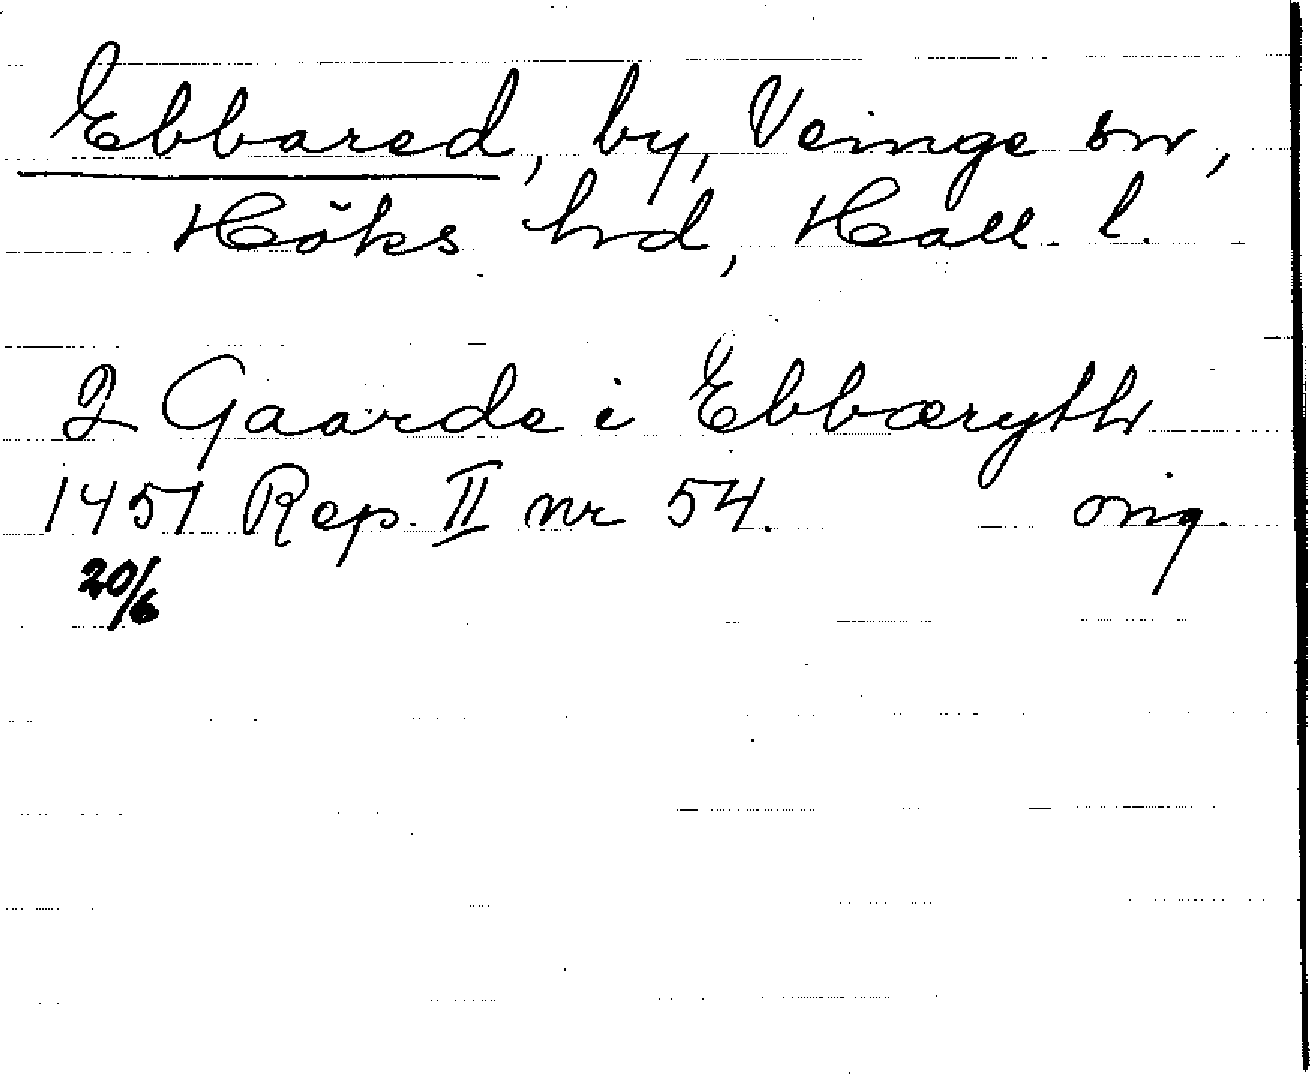 Ebbared, by, Veinge sn,
Höks hd, Hall. l.
2 Gaarde i Ebbæryth
1451 Rep. II nr 54. orig.
20/6